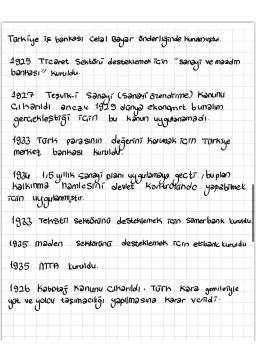 Türkiye iş bankası Celal Bayar önderliğinde kurulmuştu.
1925 Ticaret Sektörü desteklemek için "Sanayi ve maadin
bankası" kuruldu.
1927 Teşvik-i Sanayi (Sanayi özendirme) Kanunu
çıkarıldı ancak 1929 dünya ekonomi bunalım
gerçekleştiği için bu kanun uygulanamadı.
1933 Türk parasının değerini korumak için Türkiye
merkez bankası kuruldu.
1934 1.5 yıllık sanayi planı uygulamaya geçti, bu plan
kalkınma hamlesini devlet kontrolünde yapabilmek
için uygulanmıştır.
1933 Tekstil sektörünü desteklemek için Sümerbank kuruldu
1935 maden sektörünü desteklemek için etibank kuruldu
1935 MTA kuruldu.
1926 Kabotaj Kanunu çıkarıldı. Türk kara gemileriyle
yük ve yolcu taşımacılığı yapılmasına karar verildi.